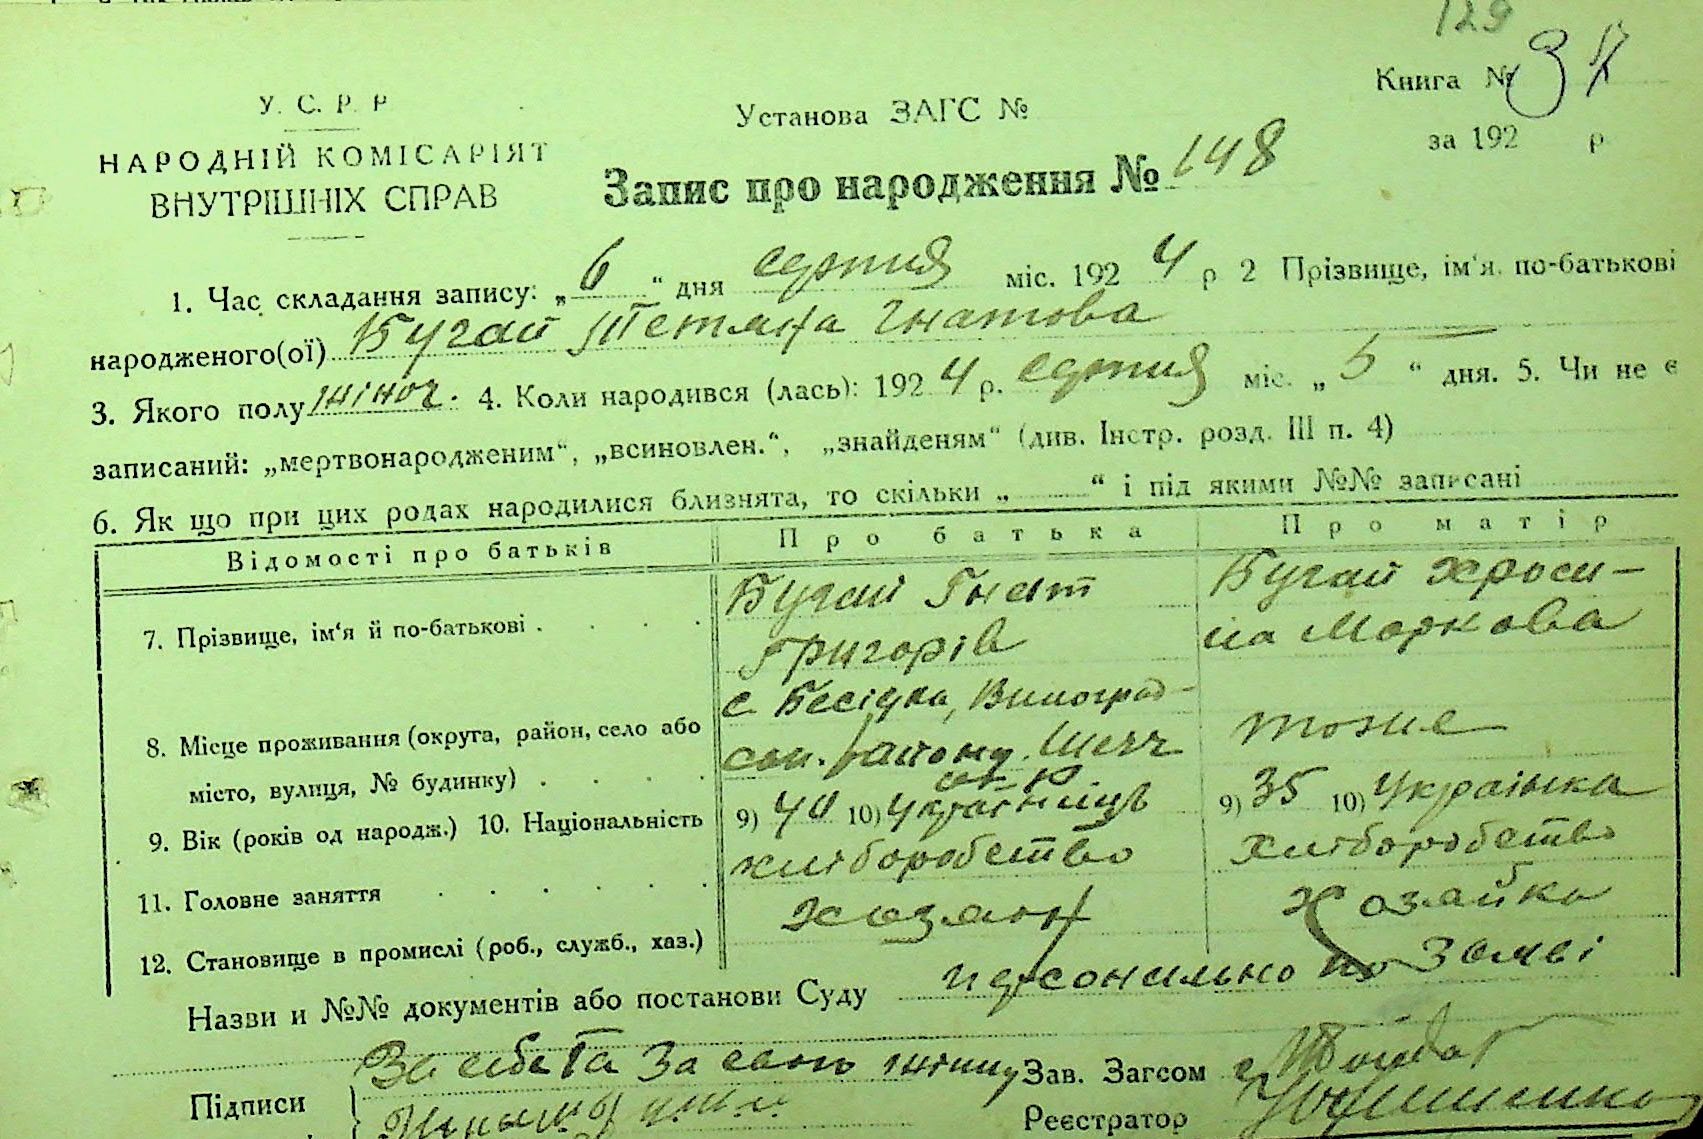 129
Книга №
У. С. Р. Р
Установа ЗАГС №
за 192 р
НАРОДНІЙ КОМІСАРІЯТ
ВНУТРІШНІХ СПРАВ
Запис про народження № 148
1. Час складання запису: „6“ дня серпня міс. 1924 р 2 Прізвище, ім'я, по-батькові
народженого(ої) Бугай Тетяна Гнатова
3. Якого полу жіноч. 4. Коли народився (лась): 1924 р. серпня міс. „5“ дня. 5. Чи не є
записаний: „мертвонародженим“, „всиновлен.“, „знайденям“ (див. Інстр. розд. III п. 4)
6. Як що при цих родах народилися близнята, то скільки „ “ і під якими №№ записані
Відомості про батьків Про батька Про матір
7. Прізвище, ім'я й по-батькові . . . .
Бугай Гнат
Григорів
Бугай Хроси-
на Маркова
8. Місце проживання (округа, район, село або
місто, вулиця, № будинку) . . . .
с Бесідка, Виноград-
ськ. району Шевч
ок
тоже
9. Вік (років од народж.) 10. Національність 9) 40 10) Українець 9) 35 10) Українка
11. Головне заняття . . . . . . хліборобство Хліборобство
12. Становище в промислі (роб., служб., хаз.) хазяин Хозяйка
Назви и №№ документів або постанови Суду персонально по Заяві
Підписи За себе та За свою жінку
Зав. Загсом
Реєстратор